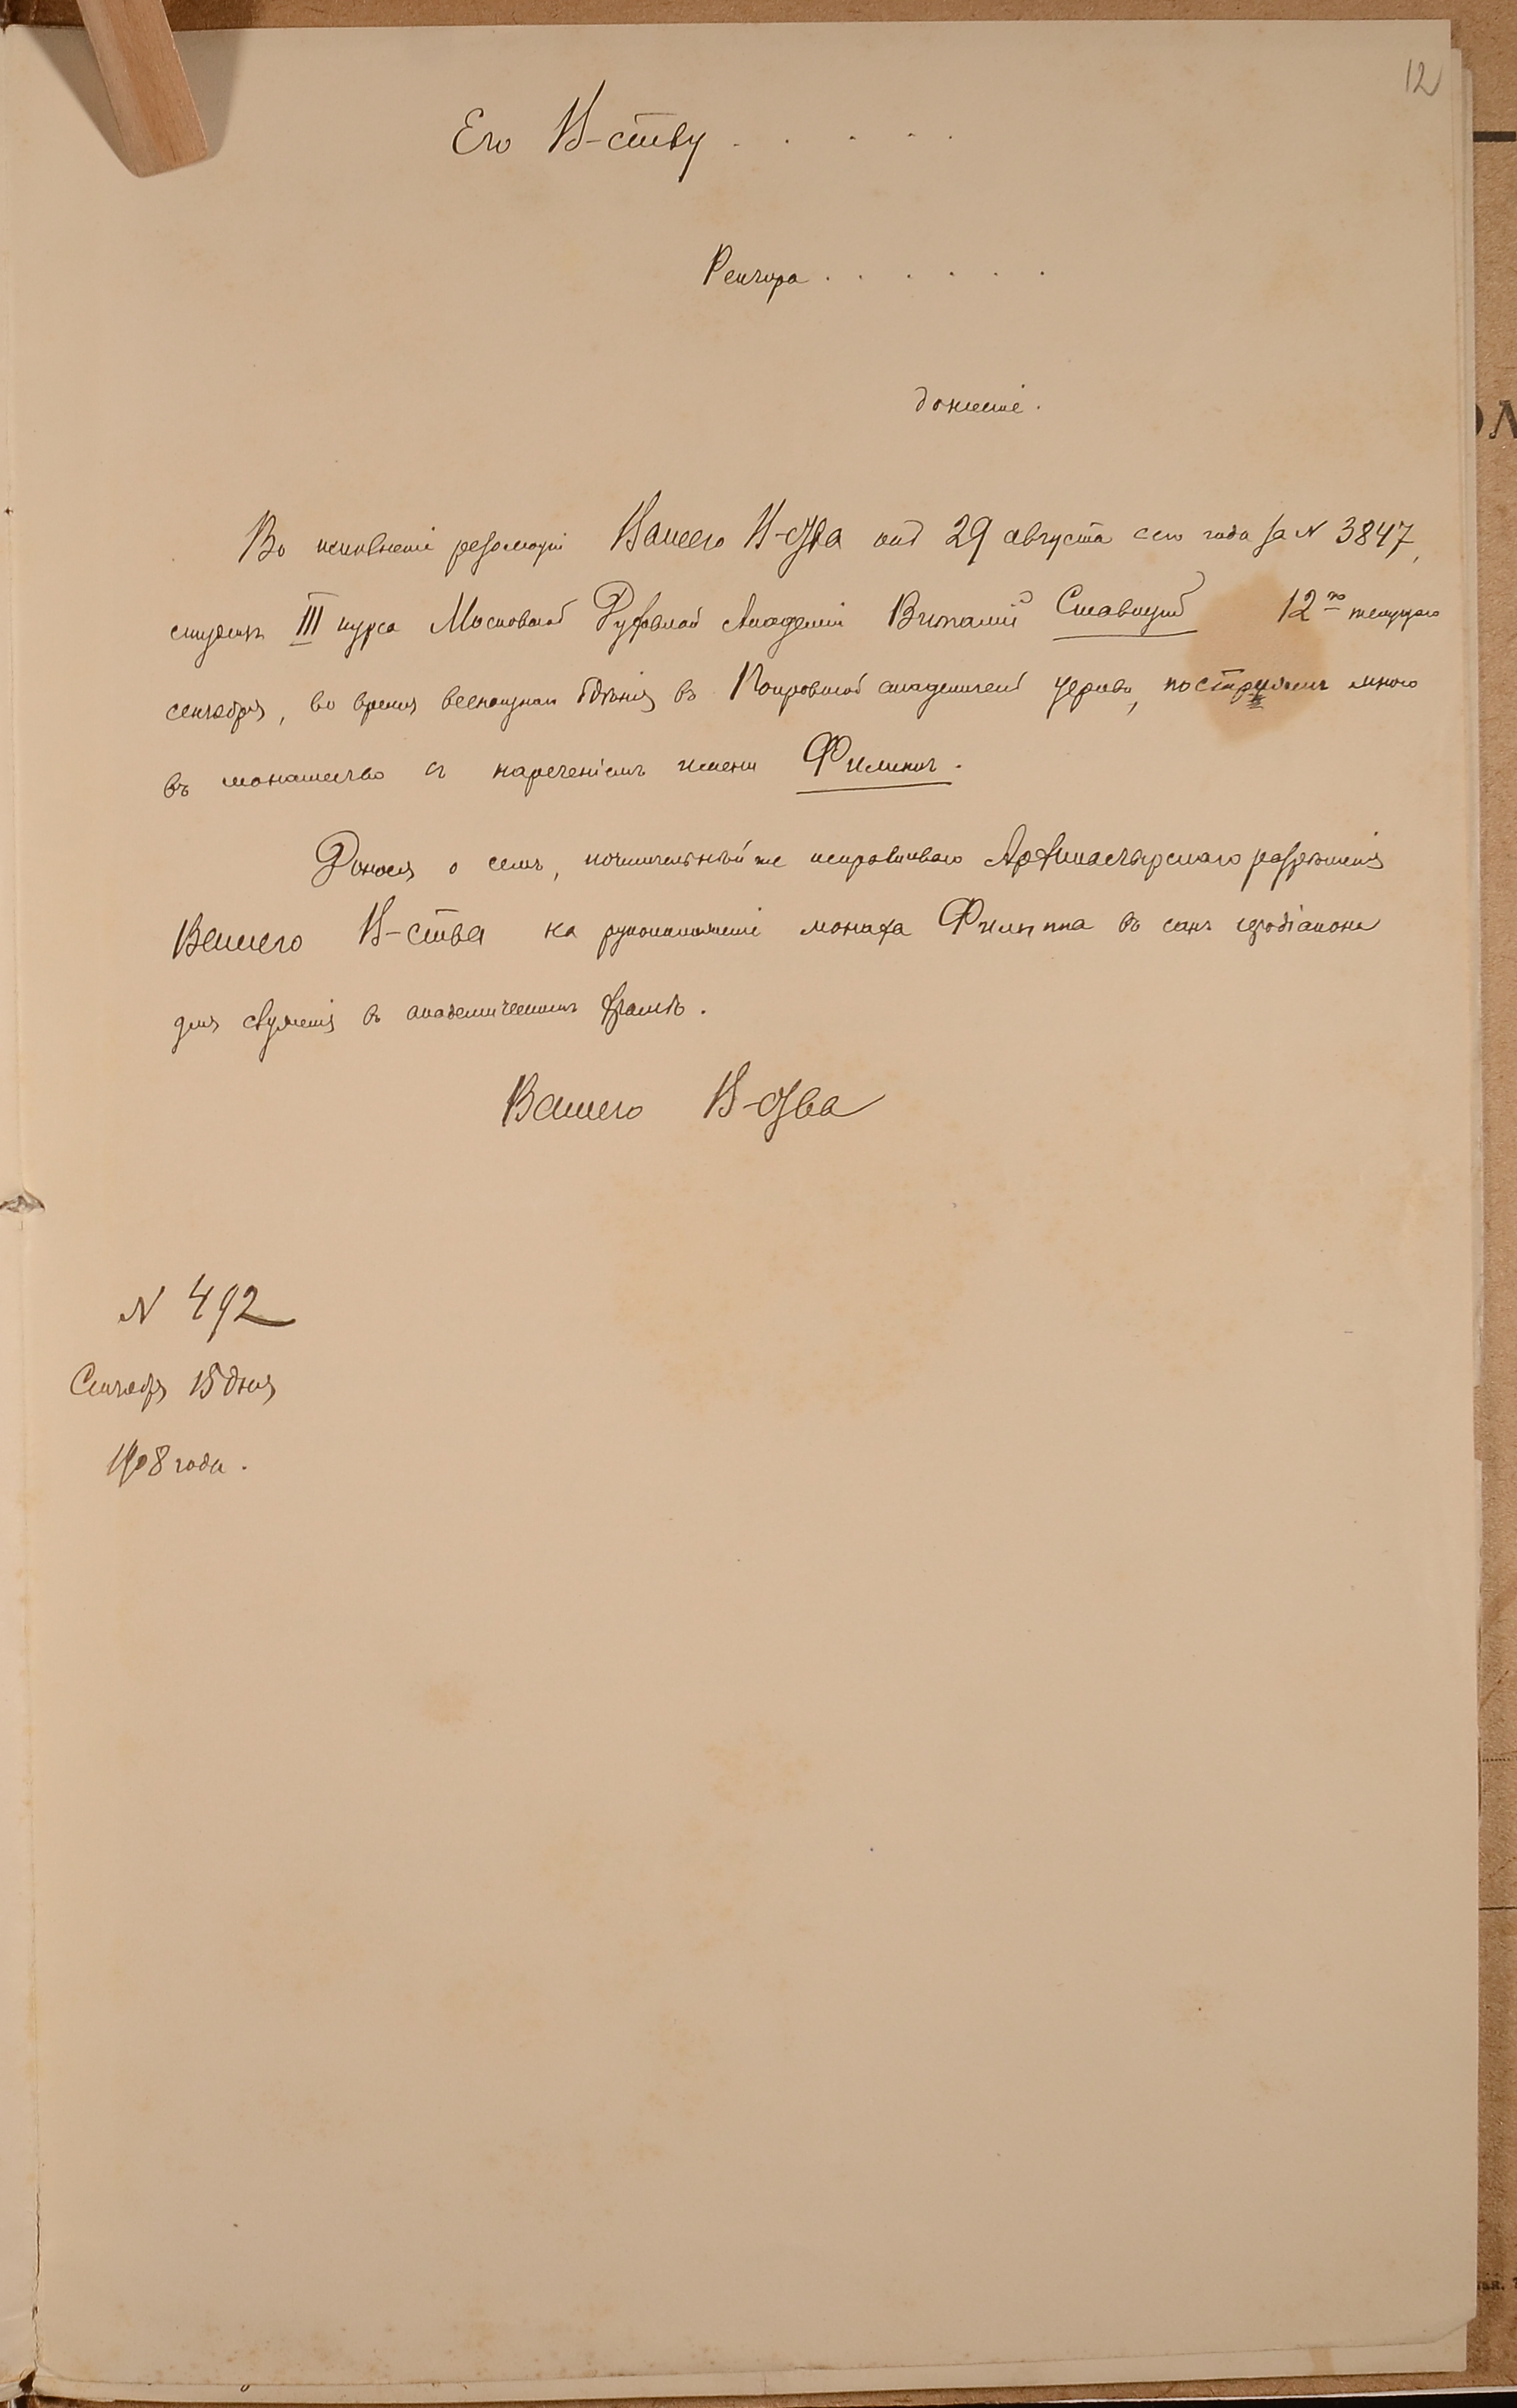 12
Его В-ству . . . . .
Ректора . . . . . .
донесеніе.
Во исполненіе резолюціи Вашего В-ства отъ 29 августа сего года за N 3847,
студентъ III курса Московской Духовной Академіи Виталій Ставицкій 12го текущаго
сентября, во время всенощнаго бдѣнія въ Покровской академической церкви, постриженъ мною
въ монашество съ нареченіемъ имени Филиппъ.
Донося о семъ, почтительнѣйше испрашиваю Архипастырскаго разрѣшенія
Вашего В-ства на рукоположеніе монаха Филиппа въ санъ іеродіакона
для служенія въ академическомъ храмѣ.
Вашего В-ства
N 492
Сентября 15 дня
1908 года.